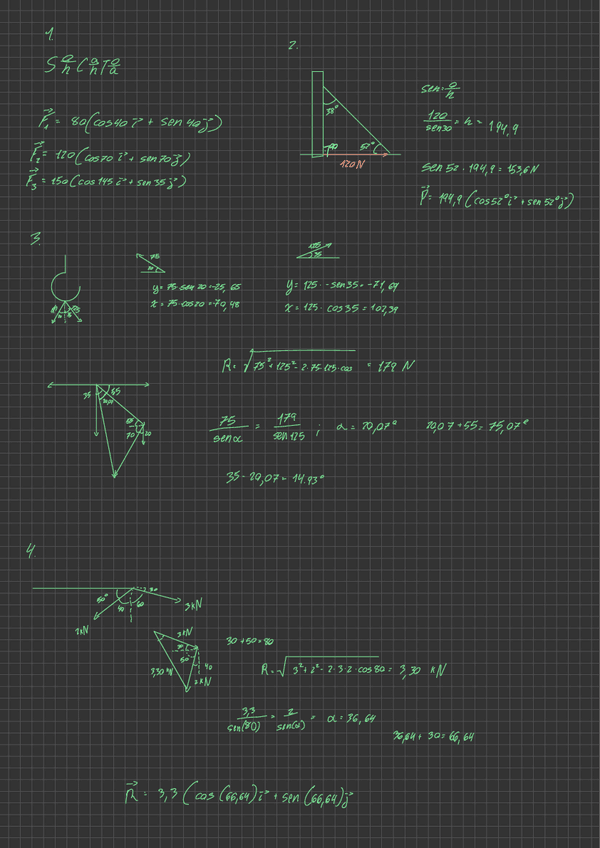 1.
S o/h C a/h T o/a
F₁ = 80(cos40 i + sen 40 j)
F₂ = 120(cos70 i + sen 70 j)
F₃ = 150(cos 145 i + sen 35 j)
2.
38°
90
52°
120N
sen = o/h
120/sen38 = h = 194,9
sen 52 · 194,9 = 153,6 N
P = 194,9 (cos 52° i + sen 52° j)
3.
75
20
y = 75·sen 20 = 25,65
x = 75·cos20 = 70,48
125
35
y = 125·-sen35 = -71,69
x = 125·cos35 = 102,39
R = √75² + 125² - 2·75·125·cos = 179 N
35
55
70
20
75/sen α = 179/sen 125 ; α = 20,07°
20,07 + 55 = 75,07°
35 - 20,07 = 14.93°
4.
50°
40
60
30
3kN
2kN
3kN
50
40
3,30 kN
2kN
30 + 50 = 80
R = √3² + 2² - 2·3·2·cos 80 = 3,30 kN
3,3/sen(80) = 2/sen(α) = α = 36,64
36,64 + 30 = 66,64
R = 3,3 (cos (66,64) i + sen (66,64) j